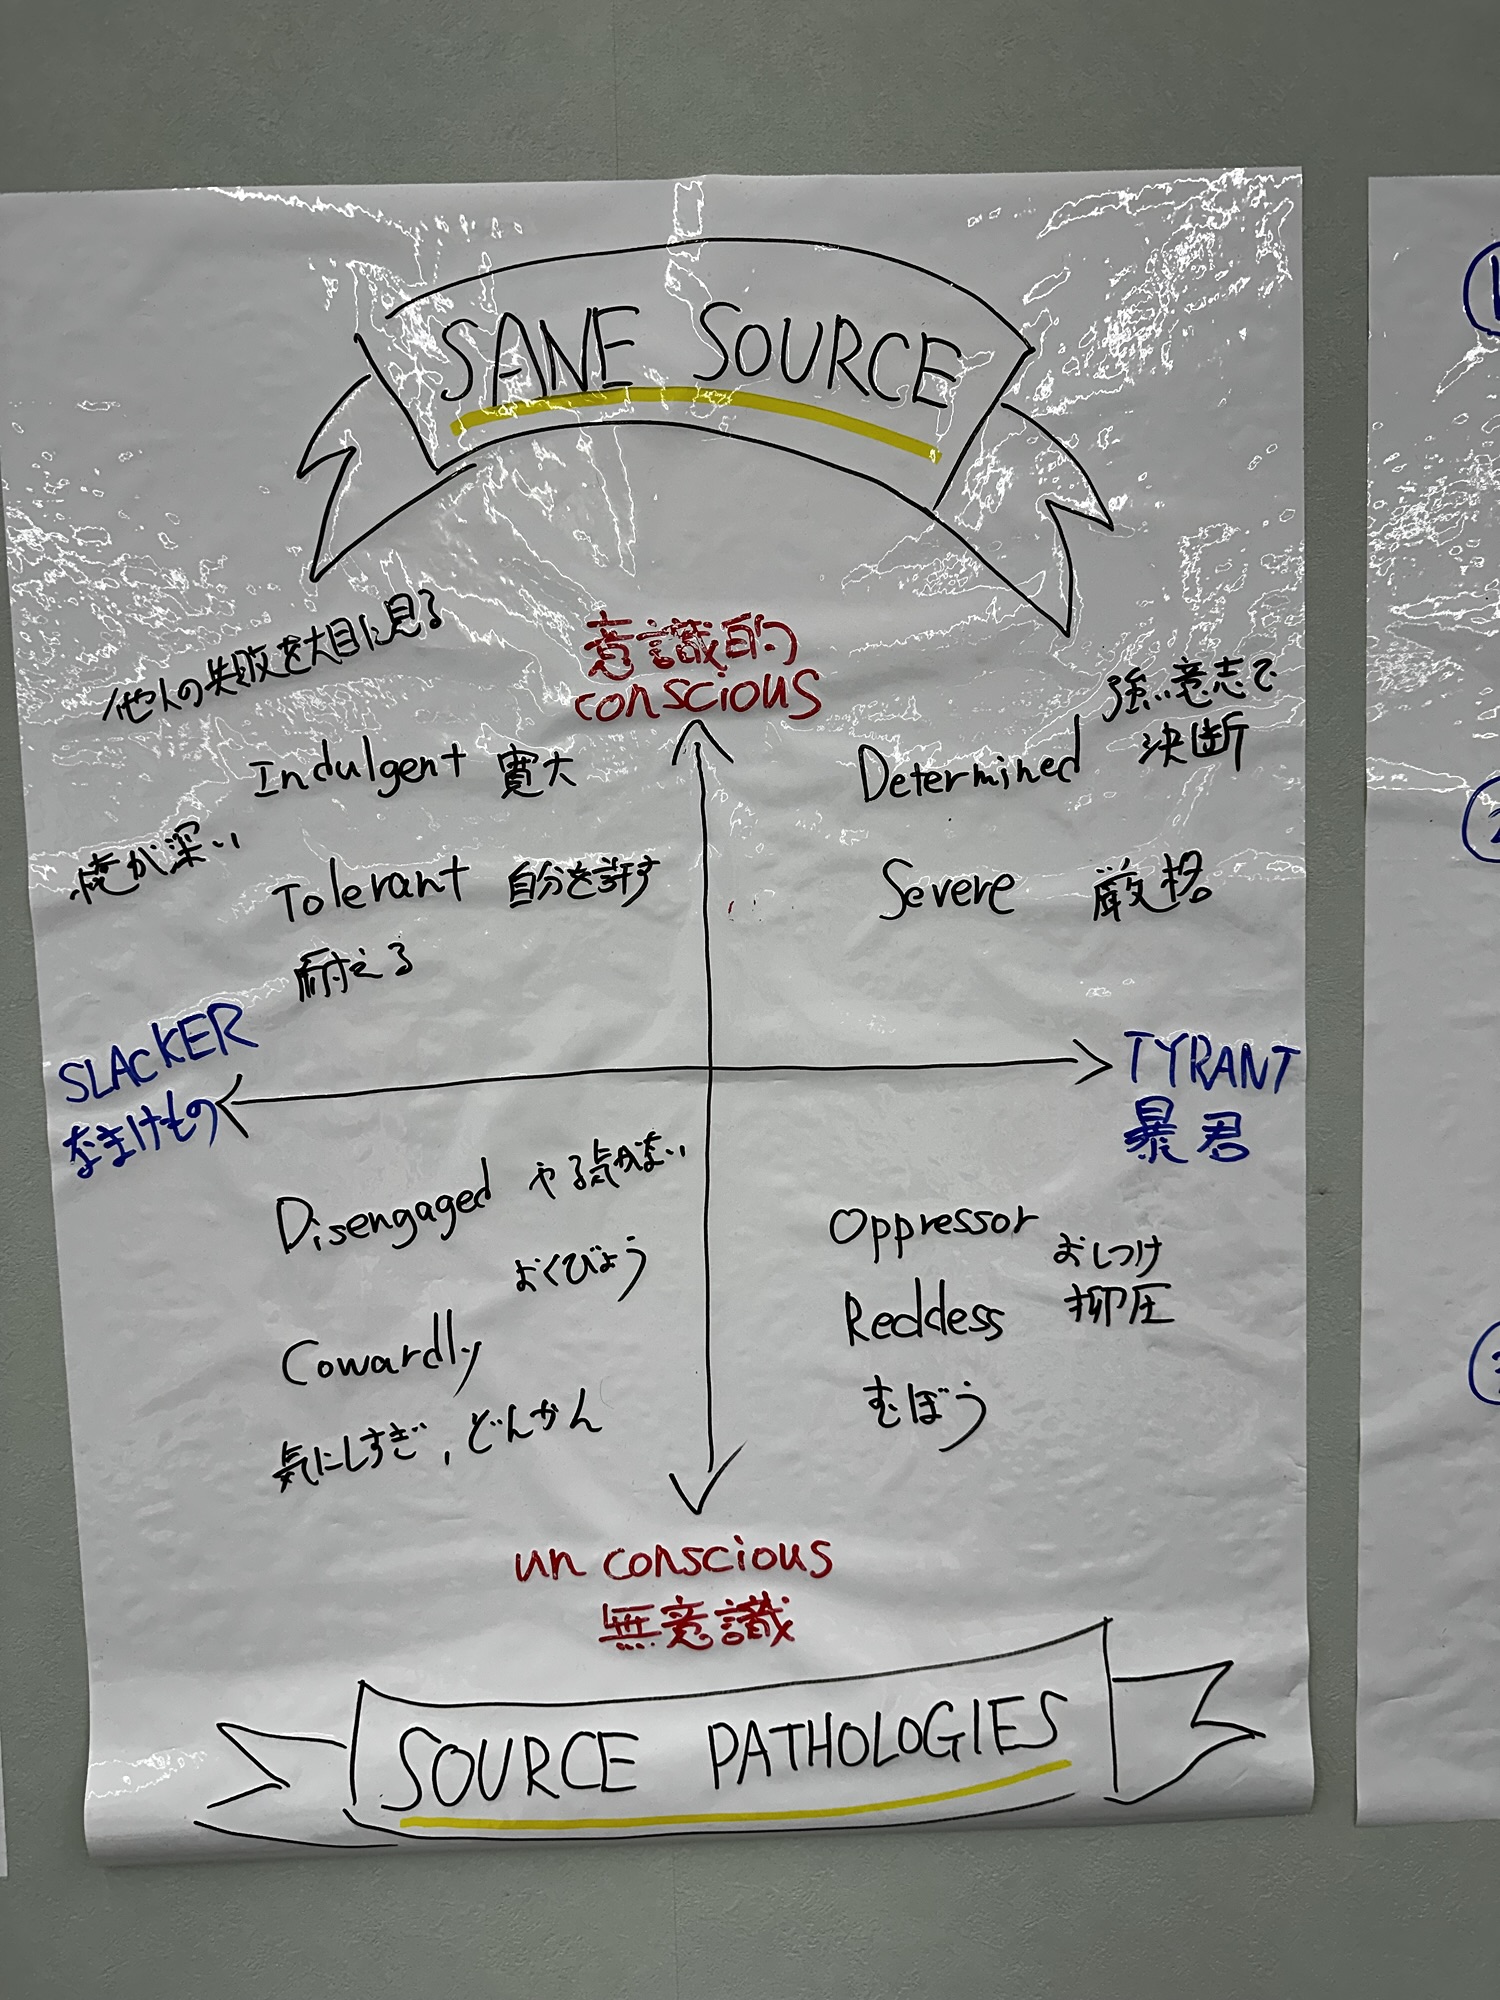 SANE SOURCE
意識的
conscious
他人の失敗を大目に見る
強い意志で
決断
Indulgent 寛大
Determined
懐が深い
Tolerant 自分を許す
Severe 厳格
耐える
SLACKER
なまけもの
TYRANT
暴君
Disengaged やる気がない
おくびょう
Cowardly
気にしすぎ, どんかん
Oppressor おしつけ
抑圧
Reddess
むぼう
un conscious
無意識
SOURCE PATHOLOGIES
1
2
3